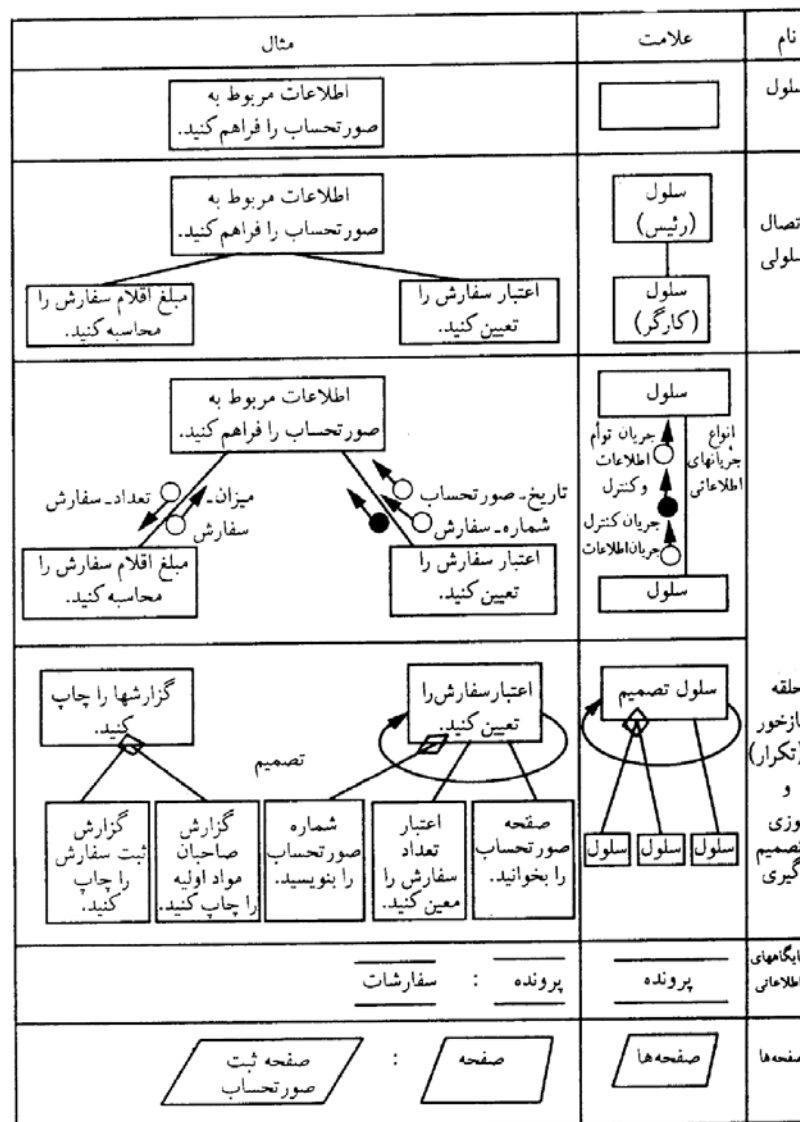 نام
علامت
مثال
سلول
اطلاعات مربوط به
صورتحساب را فراهم کنید.
سلول
(رئیس)
سلول
(کارگر)
اطلاعات مربوط به
صورتحساب را فراهم کنید.
اعتبار سفارش را
تعیین کنید.
مبلغ اقلام سفارش را
محاسبه کنید.
سلول
انواع
جریانهای
اطلاعاتی
جریان توأم
اطلاعات
و کنترل
جریان کنترل
جریان اطلاعات
سلول
اطلاعات مربوط به
صورتحساب را فراهم کنید.
تاریخ-صورتحساب
شماره-سفارش
میزان-
سفارش
تعداد-سفارش
اعتبار سفارش را
تعیین کنید.
مبلغ اقلام سفارش را
محاسبه کنید.
(تکرار)
و
گیری
سلول تصمیم
سلول
سلول
سلول
اعتبار سفارش را
تعیین کنید.
گزارشها را چاپ
کنید.
تصمیم
صفحه
صورتحساب
را بخوانید.
اعتبار
تعداد
سفارش را
معین کنید.
شماره
صورتحساب
را بنویسید.
گزارش
صاحبان
مواد اولیه
را چاپ کنید.
گزارش
ثبت سفارش
را چاپ
کنید.
پرونده
پرونده : سفارشات
صفحه‌ها
صفحه‌ها
صفحه :
صفحه ثبت
صورتحساب